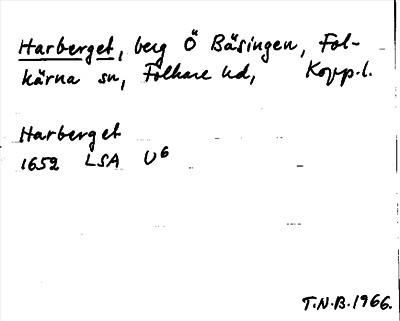 Harberget, berg Ö Bäsingen, Fol-
kärna sn, Folkare hd, Kopp.l.
Harberget
1652 LSA U6
T.N.B.1966.